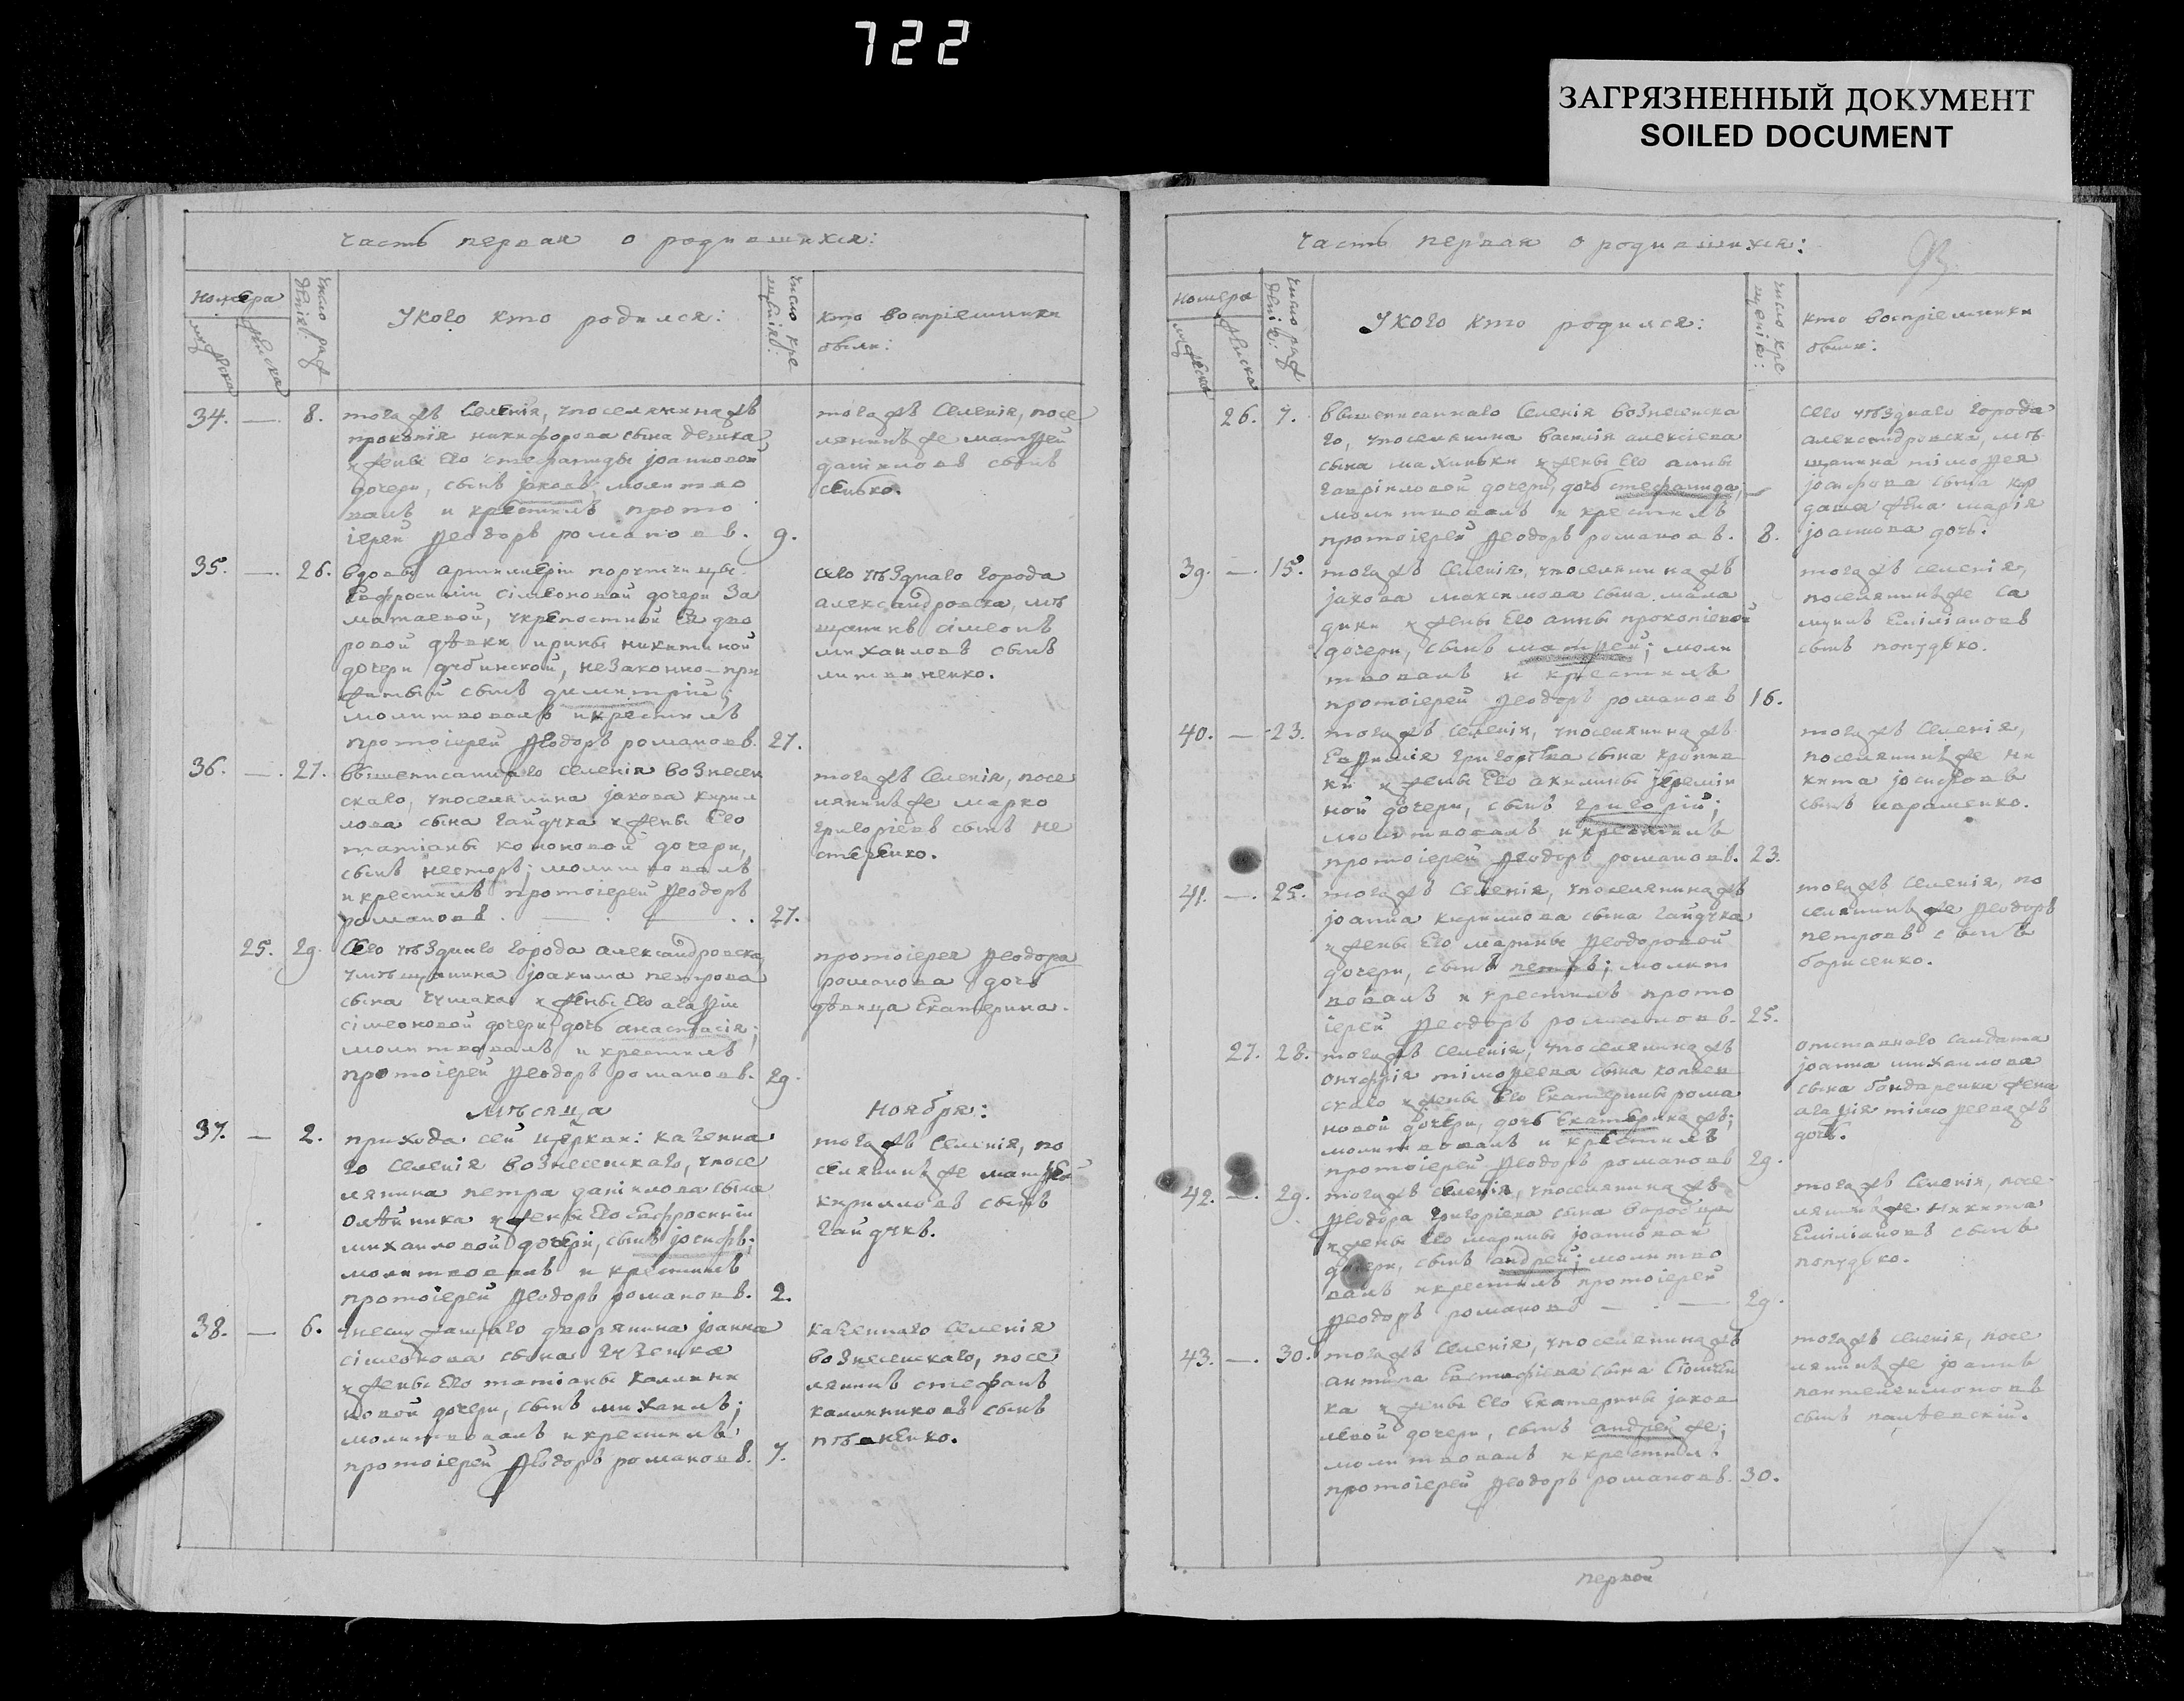 722
ЗАГРЯЗНЕННЫЙ ДОКУМЕНТ
SOILED DOCUMENT
часть первая о родившихся:
номера
мужеска
женска
число рож
денія:
Укого кто родился:
число кре
щенія:
кто воспріемники
были:
34. — 8. тогожъ Селенія, упоселянинажъ
прокопія никифорова сына дешка
и жены Его стефаниды іоанновой
дочери, сынъ іаковъ; молитво
валъ и крестилъ прото
іерей Ѳеодоръ романовъ. 9.
тогожъ Селенія, посе
лянинъ же матѳей
даніиловъ сынъ
сенько.
35. — 26. вдовы артиллеріи порутчицы
Евфросиніи сімеоновой дочери За
матаевой, укрепостной Ея дво
ровой дѣвки ирины никитиной
дочери дубинской, незаконно-при
житый сынъ димитрій;
молитвовалъ икрестилъ
протоіерей Ѳеодоръ романовъ. 27.
сего уѣзднаго города
александровска, мѣ
щанинъ сімеонъ
михаиловъ сынъ
литвиненко.
36. — 27. вышеписаннаго селенія вознесен
скаго, упоселянина іакова кирил
лова сына гайдука и жены Его
татіаны кононовой дочери,
сынъ несторъ; молитвовалъ
икрестилъ протоіерей Ѳеодоръ
романовъ. — 27.
тогожъ Селенія, посе
лянинъ же марко
григоріевъ сынъ не
стеренко.
25. 29. Сего уѣзднаго города александровска,
умѣщанина іоакима петрова
сына чумака и жены Его агаѳіи
сімеоновой дочери, дочь анастасія;
молитвовалъ и крестилъ
протоіерей Ѳеодоръ романовъ. 29.
протоіерея Ѳеодора
романова дочь
дѣвица Екатерина.
мѣсяца ноября:
37. — 2. прихода сей церкви: казенна
го селенія вознесенскаго, упосе
лянина петра даніилова сына
олѣйника и жены Его Евфросиніи
михаиловой дочери, сынъ іосифъ;
молитвовалъ и крестилъ
протоіерей Ѳеодоръ романовъ. 2.
тогожъ Селенія, по
селянинъ же матѳей
кирилловъ сынъ
гайдукъ.
38. — 6. унеслужащаго дворянина іоанна
сімеонова сына
и жены Его татіаны калинни
ковой дочери, сынъ михаилъ;
молитвовалъ и крестилъ
протоіерей Ѳеодоръ романовъ. 7.
казеннаго Селенія
вознесенскаго, посе
лянинъ стефанъ
калинниковъ сынъ
пѣвненко.
часть первая о родившихся:
номера
мужеска
женска
число рож
деніе:
Укого кто родился:
число кре
щенія:
кто воспріемники
были:
26. 7. вышеписаннаго Селенія вознесенска
го, упоселянина василія алексіева
сына махиньки и жены Его анны
гавріиловой дочери, дочь стефанида;
молитвовалъ и крестилъ
протоіерей Ѳеодоръ романовъ. 8.
сего уѣзднаго города
александровска, мѣ
щанина тімоѳея
іосифова сына кор
жена марія
іоаннова дочь.
39. — 15. тогожъ Селенія, упоселянинажъ
іакова максимова сына мала
и жены Его анны прокопіевой
дочери, сынъ матѳей; моли
твовалъ и крестилъ
протоіерей Ѳеодоръ романовъ 16.
тогожъ селенія,
поселянинъ же са
муилъ Еміліановъ
сынъ попудько.
40. — 23. тогожъ Селенія, упоселянинажъ
Евѳимія григоріева сына
и жены Его акилины іеремии
ной дочери, сынъ григорій;
молитвовалъ икрестилъ
протоіерей Ѳеодоръ романовъ. 23.
тогожъ Селенія,
поселянинъ же ни
кита іосифовъ
сынъ
41. — 25. тогожъ Селенія, упоселянинажъ
іоанна кирилова сына гайдука
и жены Его марины Ѳеодоровой
дочери, сынъ петръ; молит
вовалъ и крестилъ прото
іерей Ѳеодоръ романовъ. 25.
тогожъ Селенія, по
селянинъ же Ѳеодоръ
петровъ сынъ
борисенко.
27. 28. тогожъ Селенія, упоселянинажъ
онуфрія тімоѳеева сына
скаго и жены Его Екатерины рома
новой дочери, дочь Екатеринажъ;
молитвовалъ и крестилъ
протоіерей Ѳеодоръ романовъ 29.
отставнаго салдата
іоанна михаилова
сына бондаренки жена
агаѳія тімоѳееважъ
дочь.
42. — 29. тогожъ селенія, упоселянинажъ
Ѳеодора григоріева сына
и жены Его марины іоанновой
дочери, сынъ андрей; молитво
валъ икрестилъ протоіерей
Ѳеодоръ романовъ — 29.
тогожъ Селенія, посе
лянинъ же никита
Еміліановъ сынъ
попудько.
43. — 30. тогожъ Селенія, упоселянинажъ
антипа Евстафіева сына
ка и жены Его Екатерины іаков
левой дочери, сынъ андрей же;
молитвовалъ и крестилъ
протоіерей Ѳеодоръ романовъ. 30.
тогожъ селенія, посе
лянинъ же іоаннъ
пантелеимоновъ
сынъ
первой